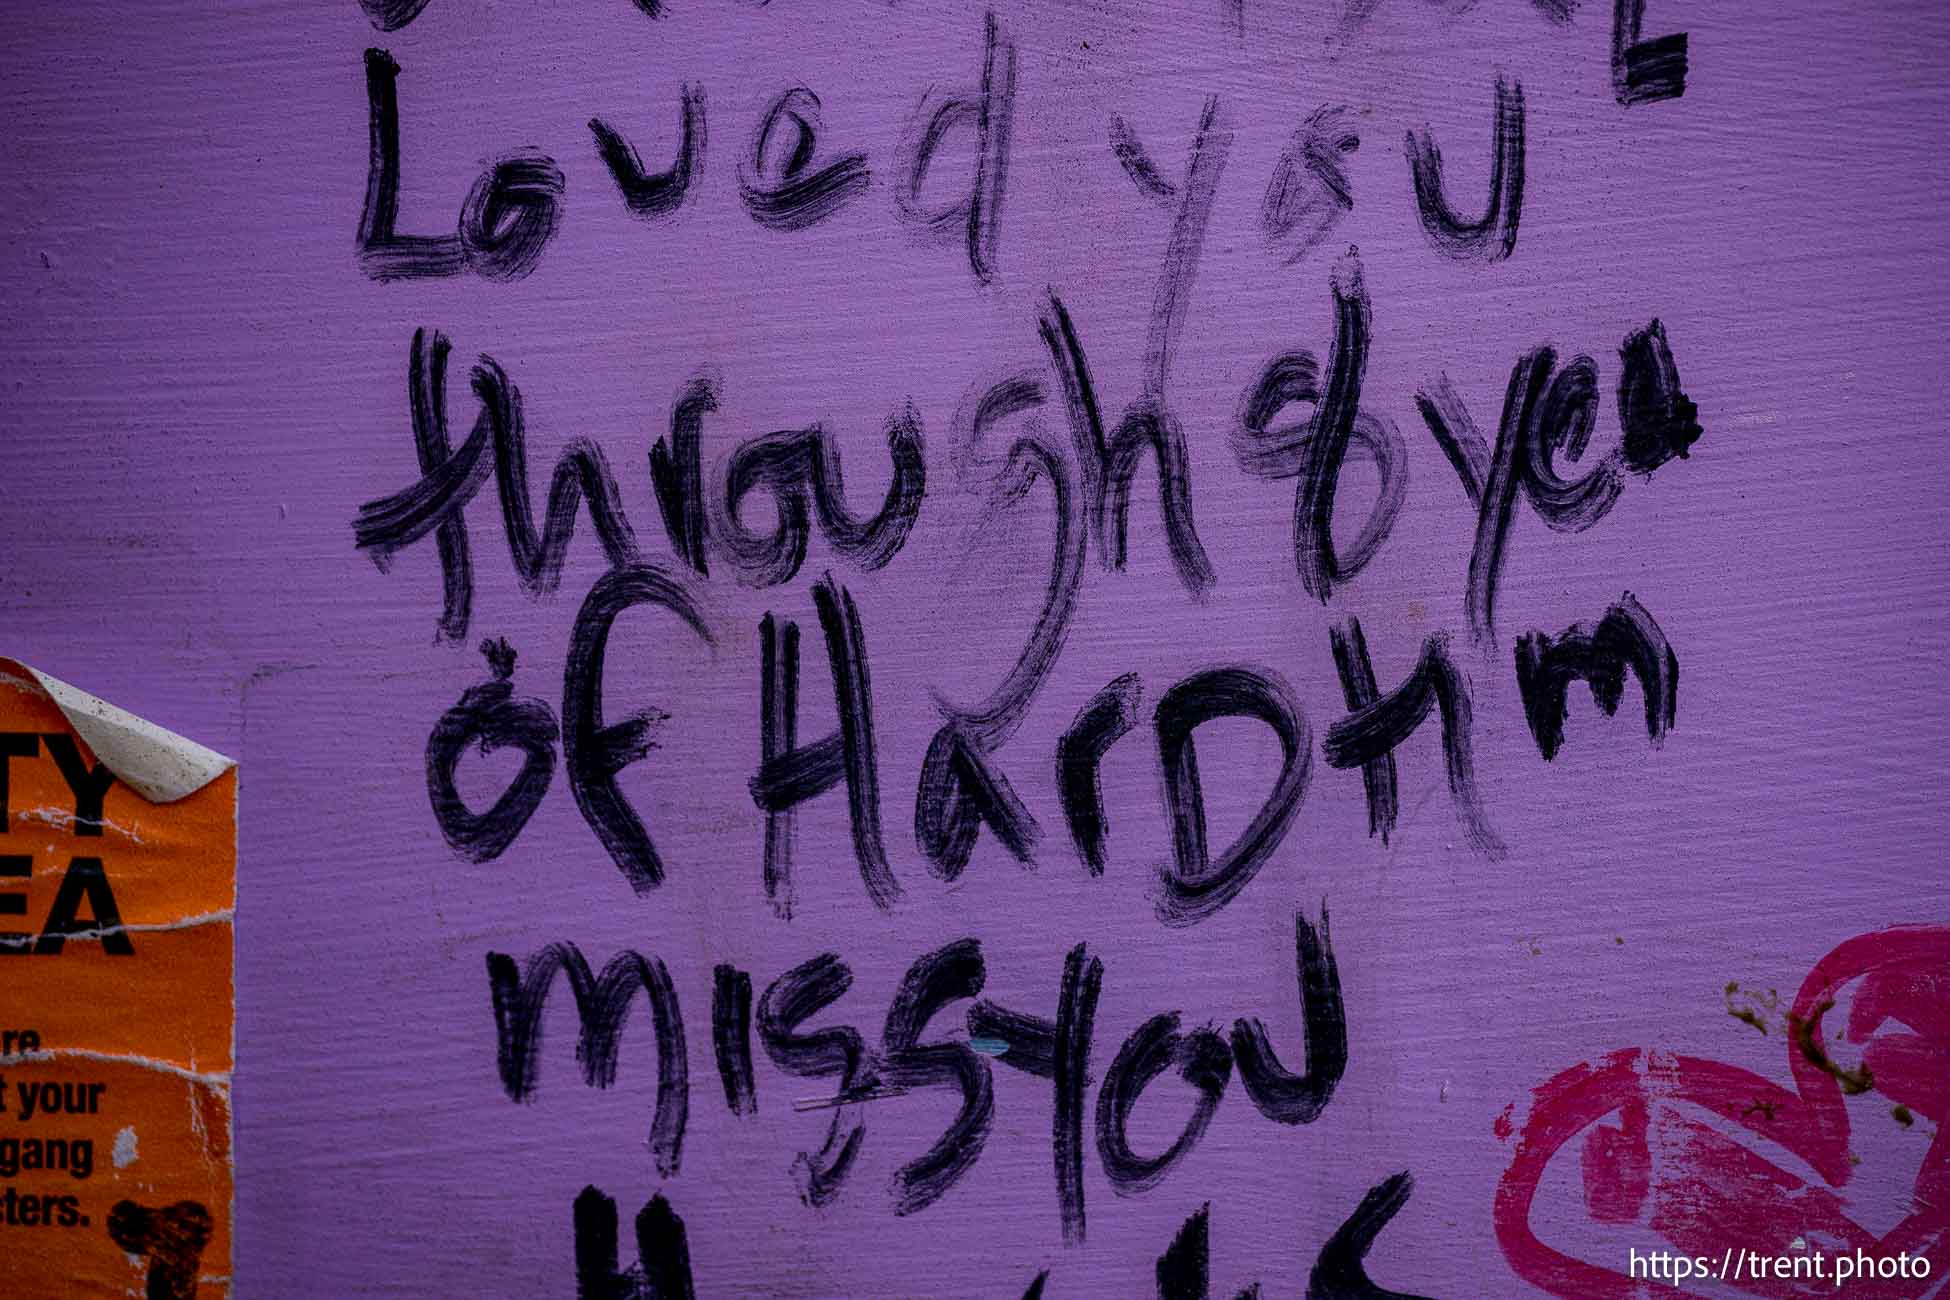 Loved you
through 8 yea
of HarD tim
miss you
TY
EA
re
t your
gang
ters.
https://trent.photo